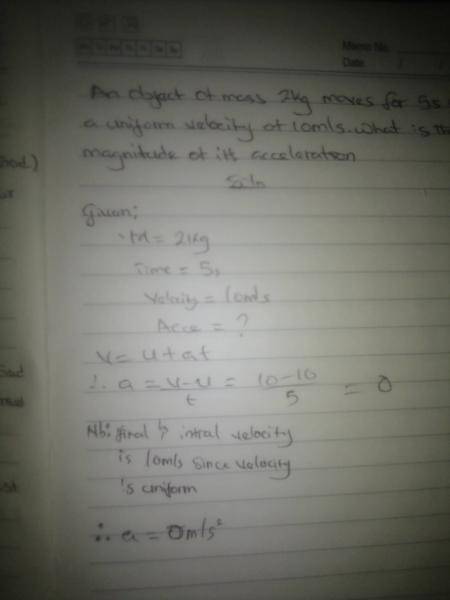 Memo No.
Date / /
An object of mass 2kg moves for 5s
a uniform velocity of 10m/s. what is the
magnitude of its acceleration
Soln
Given;
M = 2kg
Time = 5s
Velocity = 10m/s
Acce = ?
V = U + at
∴ a = V-U/t = 10-10/5 = 0
Nb: final & intral velocity
is 10m/s since velocity
is uniform
∴ a = 0m/s²